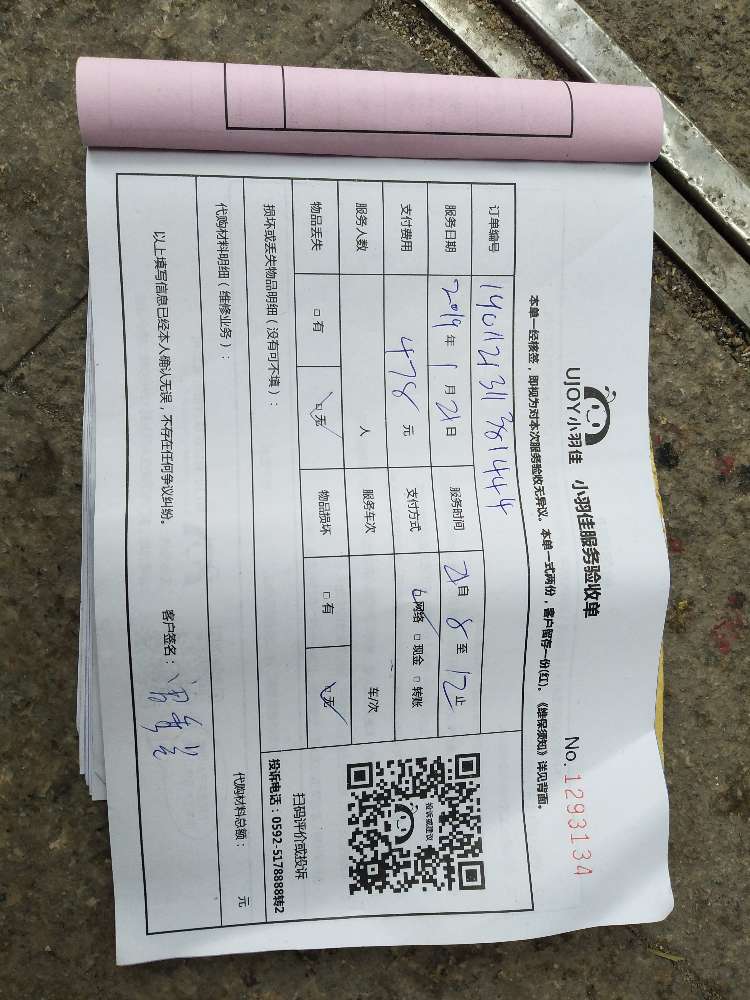 UJOY小羽佳 小羽佳服务验收单 No. 1293134
本单一经核签，即视为对本次服务验收无异议。本单一式两份，客户留存一份(红)。《维保须知》详见背面。
订单编号 190121311381444
服务日期 2019年1月21日 服务时间 21自8至12止
支付费用 478元 支付方式 网络 □现金 □转账
服务人数 人 服务车次 车/次
物品丢失 □有 □无 物品损坏 □有 □无
损坏或丢失物品明细（没有可不填）：
代购材料明细（维修业务）： 代购材料总额： 元
以上填写信息已经本人确认无误，不存在任何争议纠纷。 客户签名：
投诉或建议
扫码评价或投诉
投诉电话：0592-5178888转2